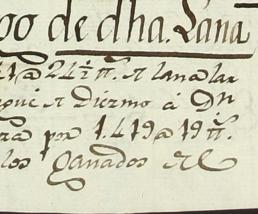 go de dha. Lana
41@ 24½ ℔. de lana lar
que de Diezmo á Dn
ra por 1.419@ 19 ℔.
los Ganados de